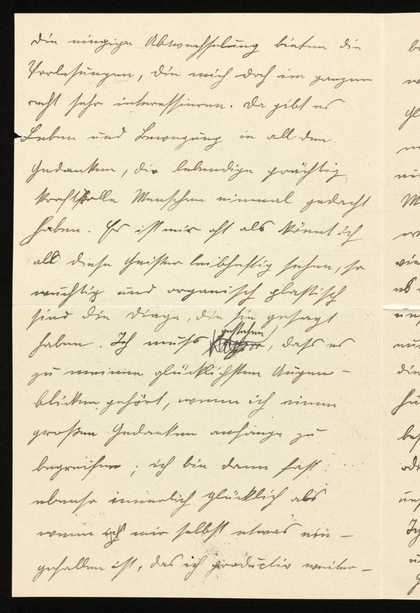 die einzige Abwechselung bieten die
Vorlesungen, die mich doch im ganzen
recht sehr interessieren. Da gibt es
Leben und Bewegung in all den
Gedanken, die lebendige prächtig
kraftvolle Menschen einmal gedacht
haben. Es ist mir oft als könnt ich
all diese Geister leibhaftig sehen, so
wuchtig und organisch plastisch
sind die Dinge, die sie gesagt
haben. Ich muss gestehen, dass es
zu meinen glücklichsten Augen-
blicken gehört, wenn ich einen
großen Gedanken anfange zu
begreifen; ich bin dann fast
ebenso innerlich glücklich als
wenn mir selbst etwas ein-
gefallen ist, das ich produktiv weiter-